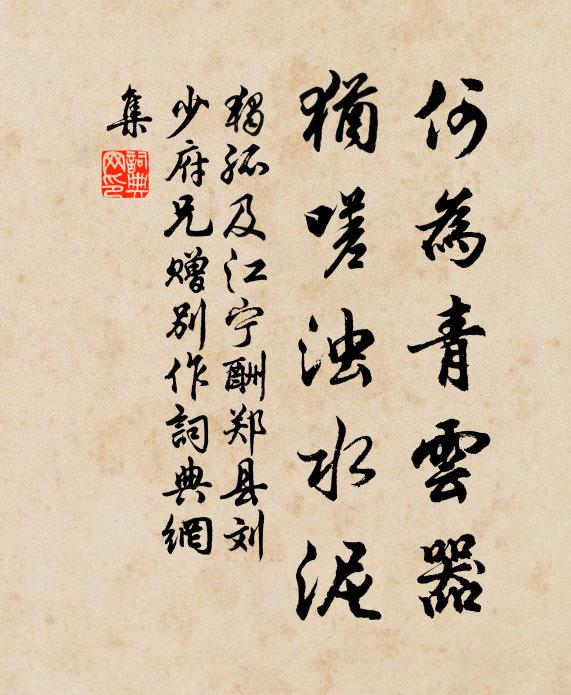 何為青雲器
猶嗟浊水泥
独孤及江宁酬郑县刘
少府兄赠别作詞典網
集
詞典
网印